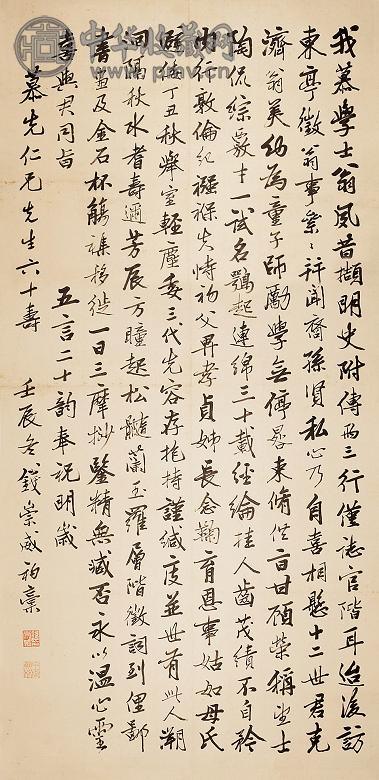 我慕學士翁風昔擷明史附傳兩三行僅誌官階耳迨後訪
東亭徵翁事業聞孫賢私心乃自喜相懸十二世君克
濟翁美幼為童子師勵學無倦晷束脩供旨甘顧榮稱望士
陶侃綜覈士一試名鵲起連綿三十載經綸挂人齒茂績不自矜
內行敦倫紀襁褓失恃初父畀孝貞姊長念鞠育恩事姑如母氏
避倭丁丑秋舉室輕塵委三代先容存抱持謹緘庋並世有此人溯
洄隔秋水耆壽邇芳辰方瞳起松髓蘭玉羅層階徵詞到俚鄙
書畫及金石杯觴雜移徙一日三摩挲鑒精無臧否永以溫心靈
喜與君同旨
五言二十韻奉祝明歲
慕先仁兄先生六十壽
壬辰冬錢崇威初稾
中华收藏网